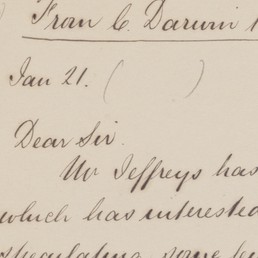 From C. Darwin
Jan 21. ( )
Dear Sir.
Mr Jeffreys has
which has interested